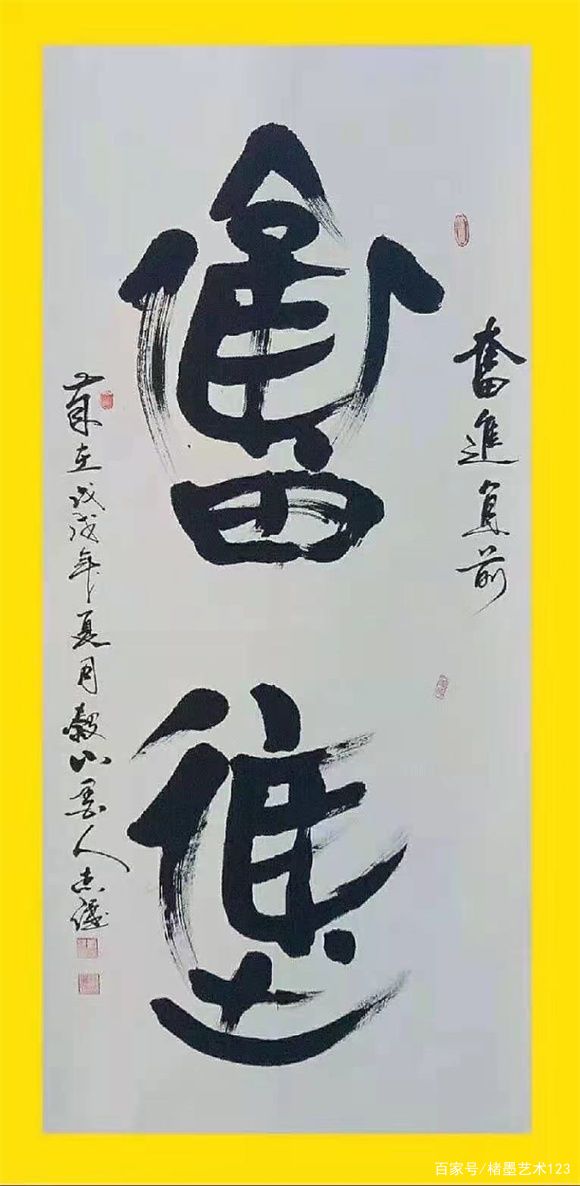 奮進直前
奮
進
歲在戊戌年夏月穀山墨人志
百家号/楮墨艺术123